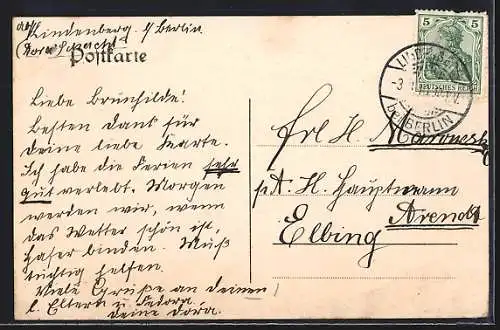 Lindenberg. b/ Berlin.
Postkarte
Liebe Brunhilde!
Besten Dank für
deine liebe Karte.
Ich habe die Ferien sehr
gut verlebt. Morgen
werden wir, wenn
das Wetter schön ist,
Hafer binden. Muß
tüchtig helfen.
Viele Grüße an deinen
l. Eltern u. Fedora.
deine Dora.
5 5
DEUTSCHES REICH
bei BERLIN
Frl H.
p. A. H. Hauptmann
Arendt
Elbing